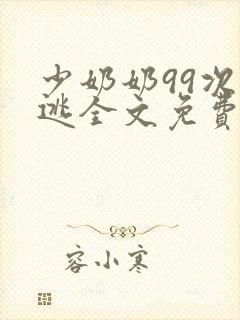 少奶奶99次
逃全文免费
容小寒